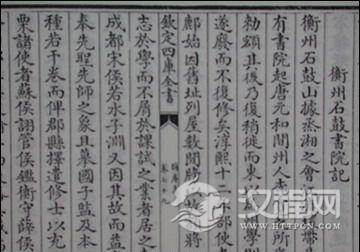 衡州石鼓書院記
衡州石鼓山據烝湘之會
有書院起唐元和間州人
勅額其後乃復稍徙而東
遂廢而不復修矣淳熙十二 部使
始因舊址列屋數間牓以故 將
欽定四庫全書
卷七十九
志於學而不屑於課試之業者居之
成都宋侯若水子淵又因其故而益
奉先聖先師之象且摹國子監及本
種若干卷而俾郡縣擇遣修士以充
栗諸使者蘇侯詡管侯鑑衡守薛侯
汉程网